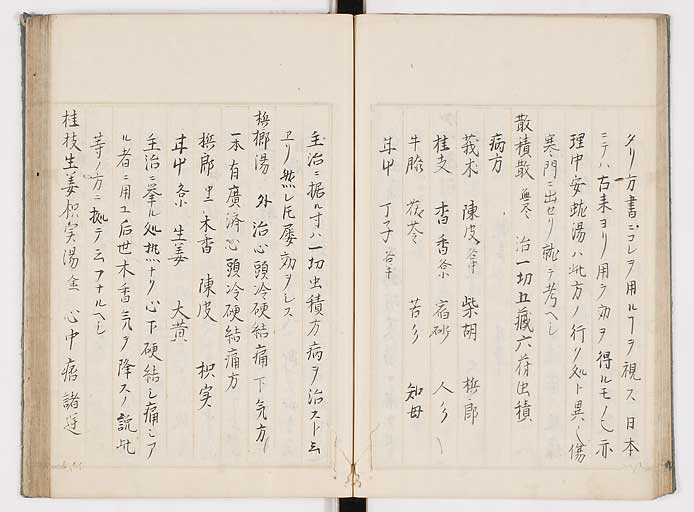 クリ方書ニコレヲ用ルヿヲ視ス日本
ニテハ古来ヨリ用テ効ヲ得ルモノ也亦
理中安蚘湯ハ此方ノ行ク処ト異ヘ傷
寒門ニ出セリ就テ考ヘシ
散積散 治一切五藏六府虫積
病方
莪朮 陳皮各中 柴胡 梹郎
桂支 木香各小 宿砂 人参
牛膝 茯苓 苦参 知母
甘中 丁子各半
主治ニ据ル寸ハ一切虫積方病ヲ治スト云
ヱリ然レ𪜈屡効ヲレス
梹榔湯 外治心頭冷硬結痛下気方
一本有廣済心頭冷硬結痛方
梹郎 木香 陳皮 枳実
甘中各小 生姜 大黄
主治ニ挙ル処然ナリ心下硬結シ痛ミア
ル者ニ用エ后世木香気ヲ降スノ説此
等ノ方ニ拠テ云フナルヘシ
桂枝生姜枳実湯 金 心中痞諸逆